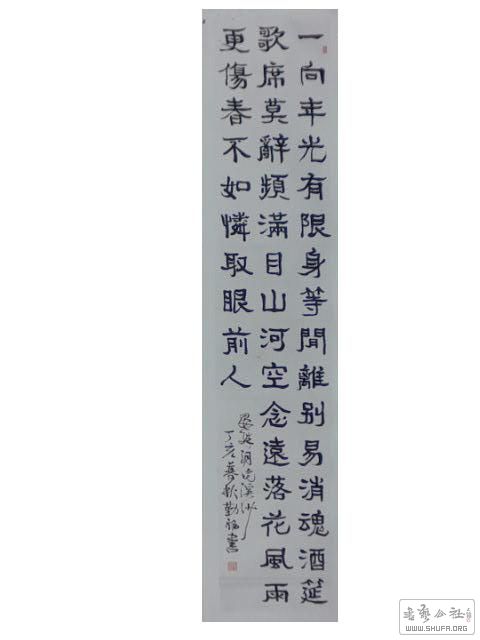 一向年光有限身等閒離別易消魂酒筵
歌席莫辭頻滿目山河空念遠落花風雨
更傷春不如憐取眼前人
晏殊詞浣溪沙
丁亥暮秋勤書
書藝公社
WWW.SHUFA.ORG